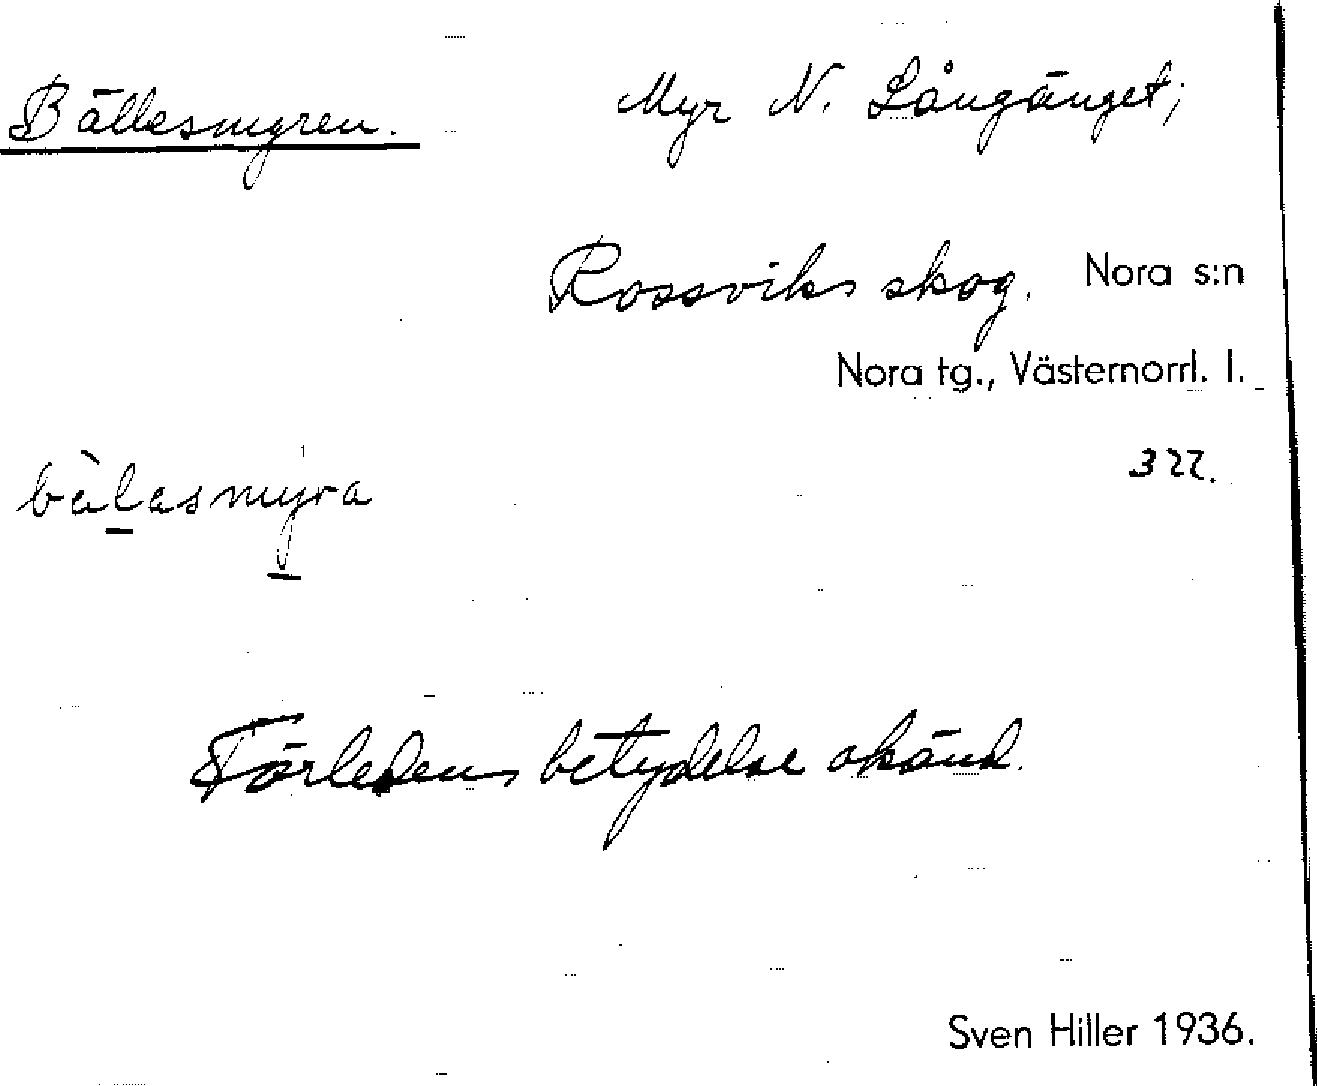 Bällesmyren. Myr N. Långänget;
Rossviks skog. Nora s:n
Nora tg., Västernorrl. l.
322.
bàlasmyra
Förledens betydelse okänd.
Sven Hiller 1936.